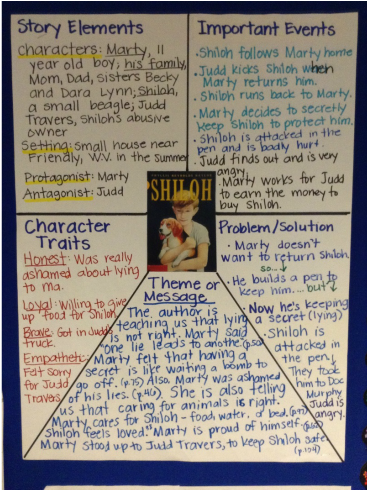 Story Elements
characters: Marty, 11
year old boy; his family,
Mom, Dad, sisters Becky
and Dara Lynn; Shiloh,
a small beagle; Judd
Travers, Shiloh's abusive
owner
Setting: small house near
Friendly, W.V. in the summer
Protagonist: Marty
Antagonist: Judd
Important Events
• Shiloh follows Marty home
• Judd kicks Shiloh when
Marty returns him.
• Shiloh runs back to Marty.
• Marty decides to secretly
keep Shiloh to protect him.
• Shiloh is attacked in the
pen and is badly hurt.
• Judd finds out and is very
angry.
• Marty works for Judd
to earn the money to
buy Shiloh.
SHILOH
Character
Traits
Honest: Was really
ashamed about lying
to ma.
Loyal: Willing to give
up food for Shiloh.
Brave: Got in Judd's
truck.
Empathetic:
Felt sorry
for Judd
Travers
Problem/Solution
• Marty doesn't
want to return Shiloh
so...
• He builds a pen to
keep him.... but
Now he's keeping
a secret (lying)
• Shiloh is
attacked in
the pen
They took
him to Doc
Murphy
Judd is
angry.
Theme or
Message
The author is
teaching us that lying
is not right. Marty said
"one lie leads to another."
Marty felt that having a
secret is like waiting a bomb to
go off. (p.75) Also, Marty was ashamed
of his lies. She is also telling
us that caring for animals is right.
Marty cares for Shiloh - food, water, a bed,
Shiloh feels loved." Marty is proud of himself.
Marty stood up to Judd Travers, to keep Shiloh safe.